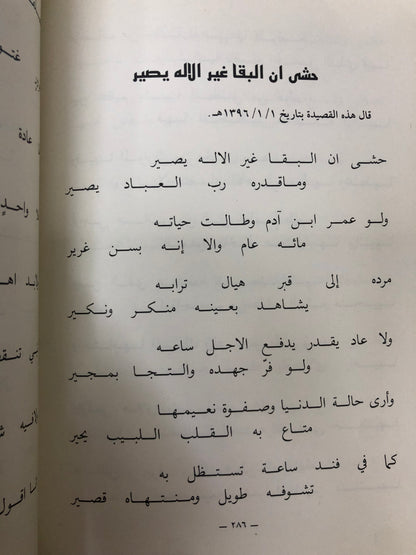 حشى ان البقا غير الاله يصير
قال هذه القصيدة بتاريخ ١/١/ ١٣٩٦هـ.
حشى ان البقا غير الاله يصير
وماقدره رب العباد يصير
ولو عمر ابن آدم وطالت حياته
مائه عام والا إنه بسن غرير
مرده إلى قبر هيال ترابه
يشاهد بعينه منكر ونكير
ولا عاد يقدر يدفع الاجل ساعه
ولو فرّ جهده والتجا بمجير
وأرى حالة الدنيا وصفوة نعيمها
متاع به القلب اللبيب يحير
كما في فند ساعة تستظل به
تشوفه طويل ومنتهاه قصير
— ٢٨٦ —
عادة
واحدٍ
اقول